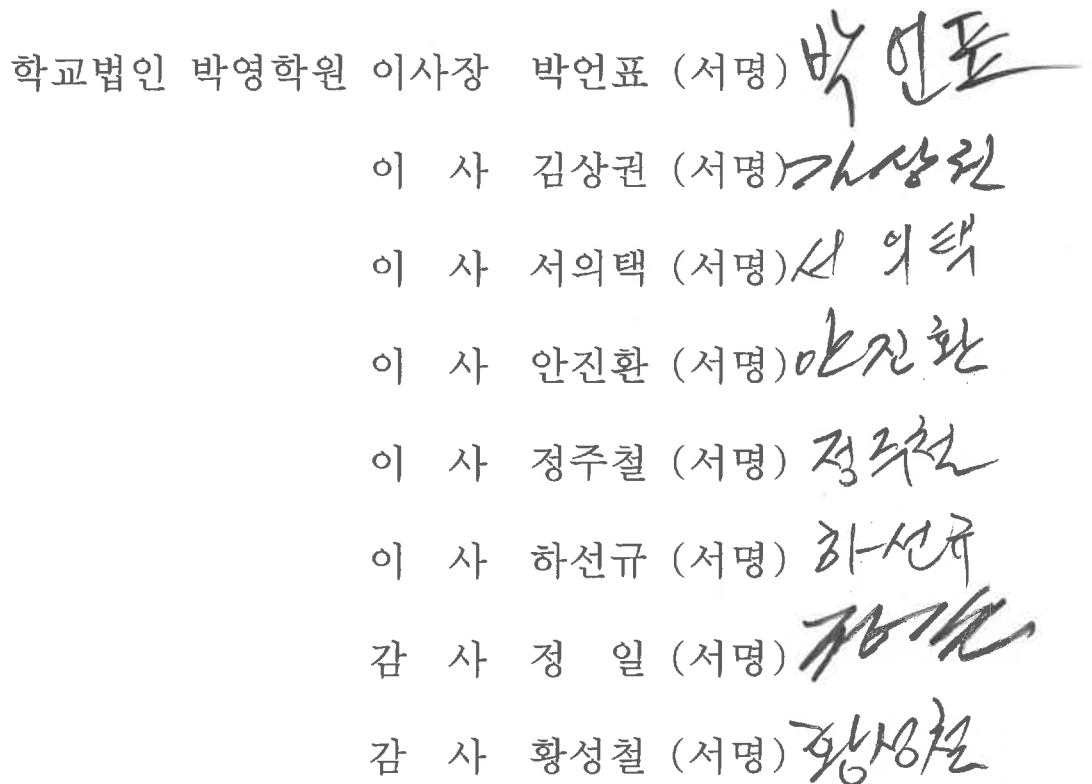 학교법인 박영학원 이사장 박언표 (서명) 박언표
이 사 김상권 (서명) 김상권
이 사 서의택 (서명) 서의택
이 사 안진환 (서명) 안진환
이 사 정주철 (서명) 정주철
이 사 하선규 (서명) 하선규
감 사 정 일 (서명)
감 사 황성철 (서명) 황성철